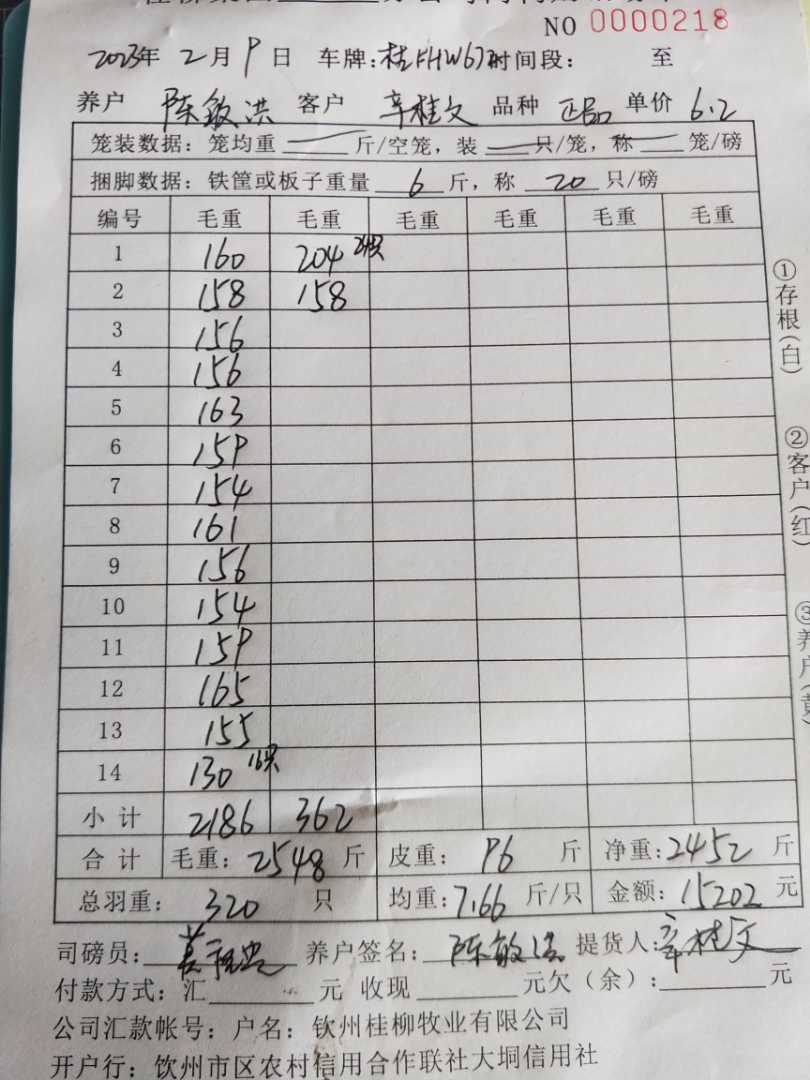 NO 0000218
2023年 2月 9日 车牌:桂FHW67 时间段: 至
养户 陈敏洪 客户 辛桂文 品种 正品 单价 6.2
笼装数据: 笼均重 斤/空笼, 装 只/笼, 称 笼/磅
捆脚数据: 铁筐或板子重量 6 斤, 称 20 只/磅
编号 毛重 毛重 毛重 毛重 毛重 毛重
1 160 204 24只
2 158 158
3 156
4 156
5 163
6 159
7 154
8 161
9 156
10 154
11 159
12 165
13 155
14 130 16只
小计 2186 362
合计 毛重: 2548 斤 皮重: 96 斤 净重: 2452 斤
总羽重: 320 只 均重: 7.66 斤/只 金额: 15202 元
司磅员: 养户签名: 陈敏洪 提货人: 辛桂文
付款方式: 汇 元 收现 元欠(余): 元
公司汇款帐号: 户名: 钦州桂柳牧业有限公司
开户行: 钦州市区农村信用合作联社大垌信用社
①存根(白)
②客户(红)
③养户(黄)